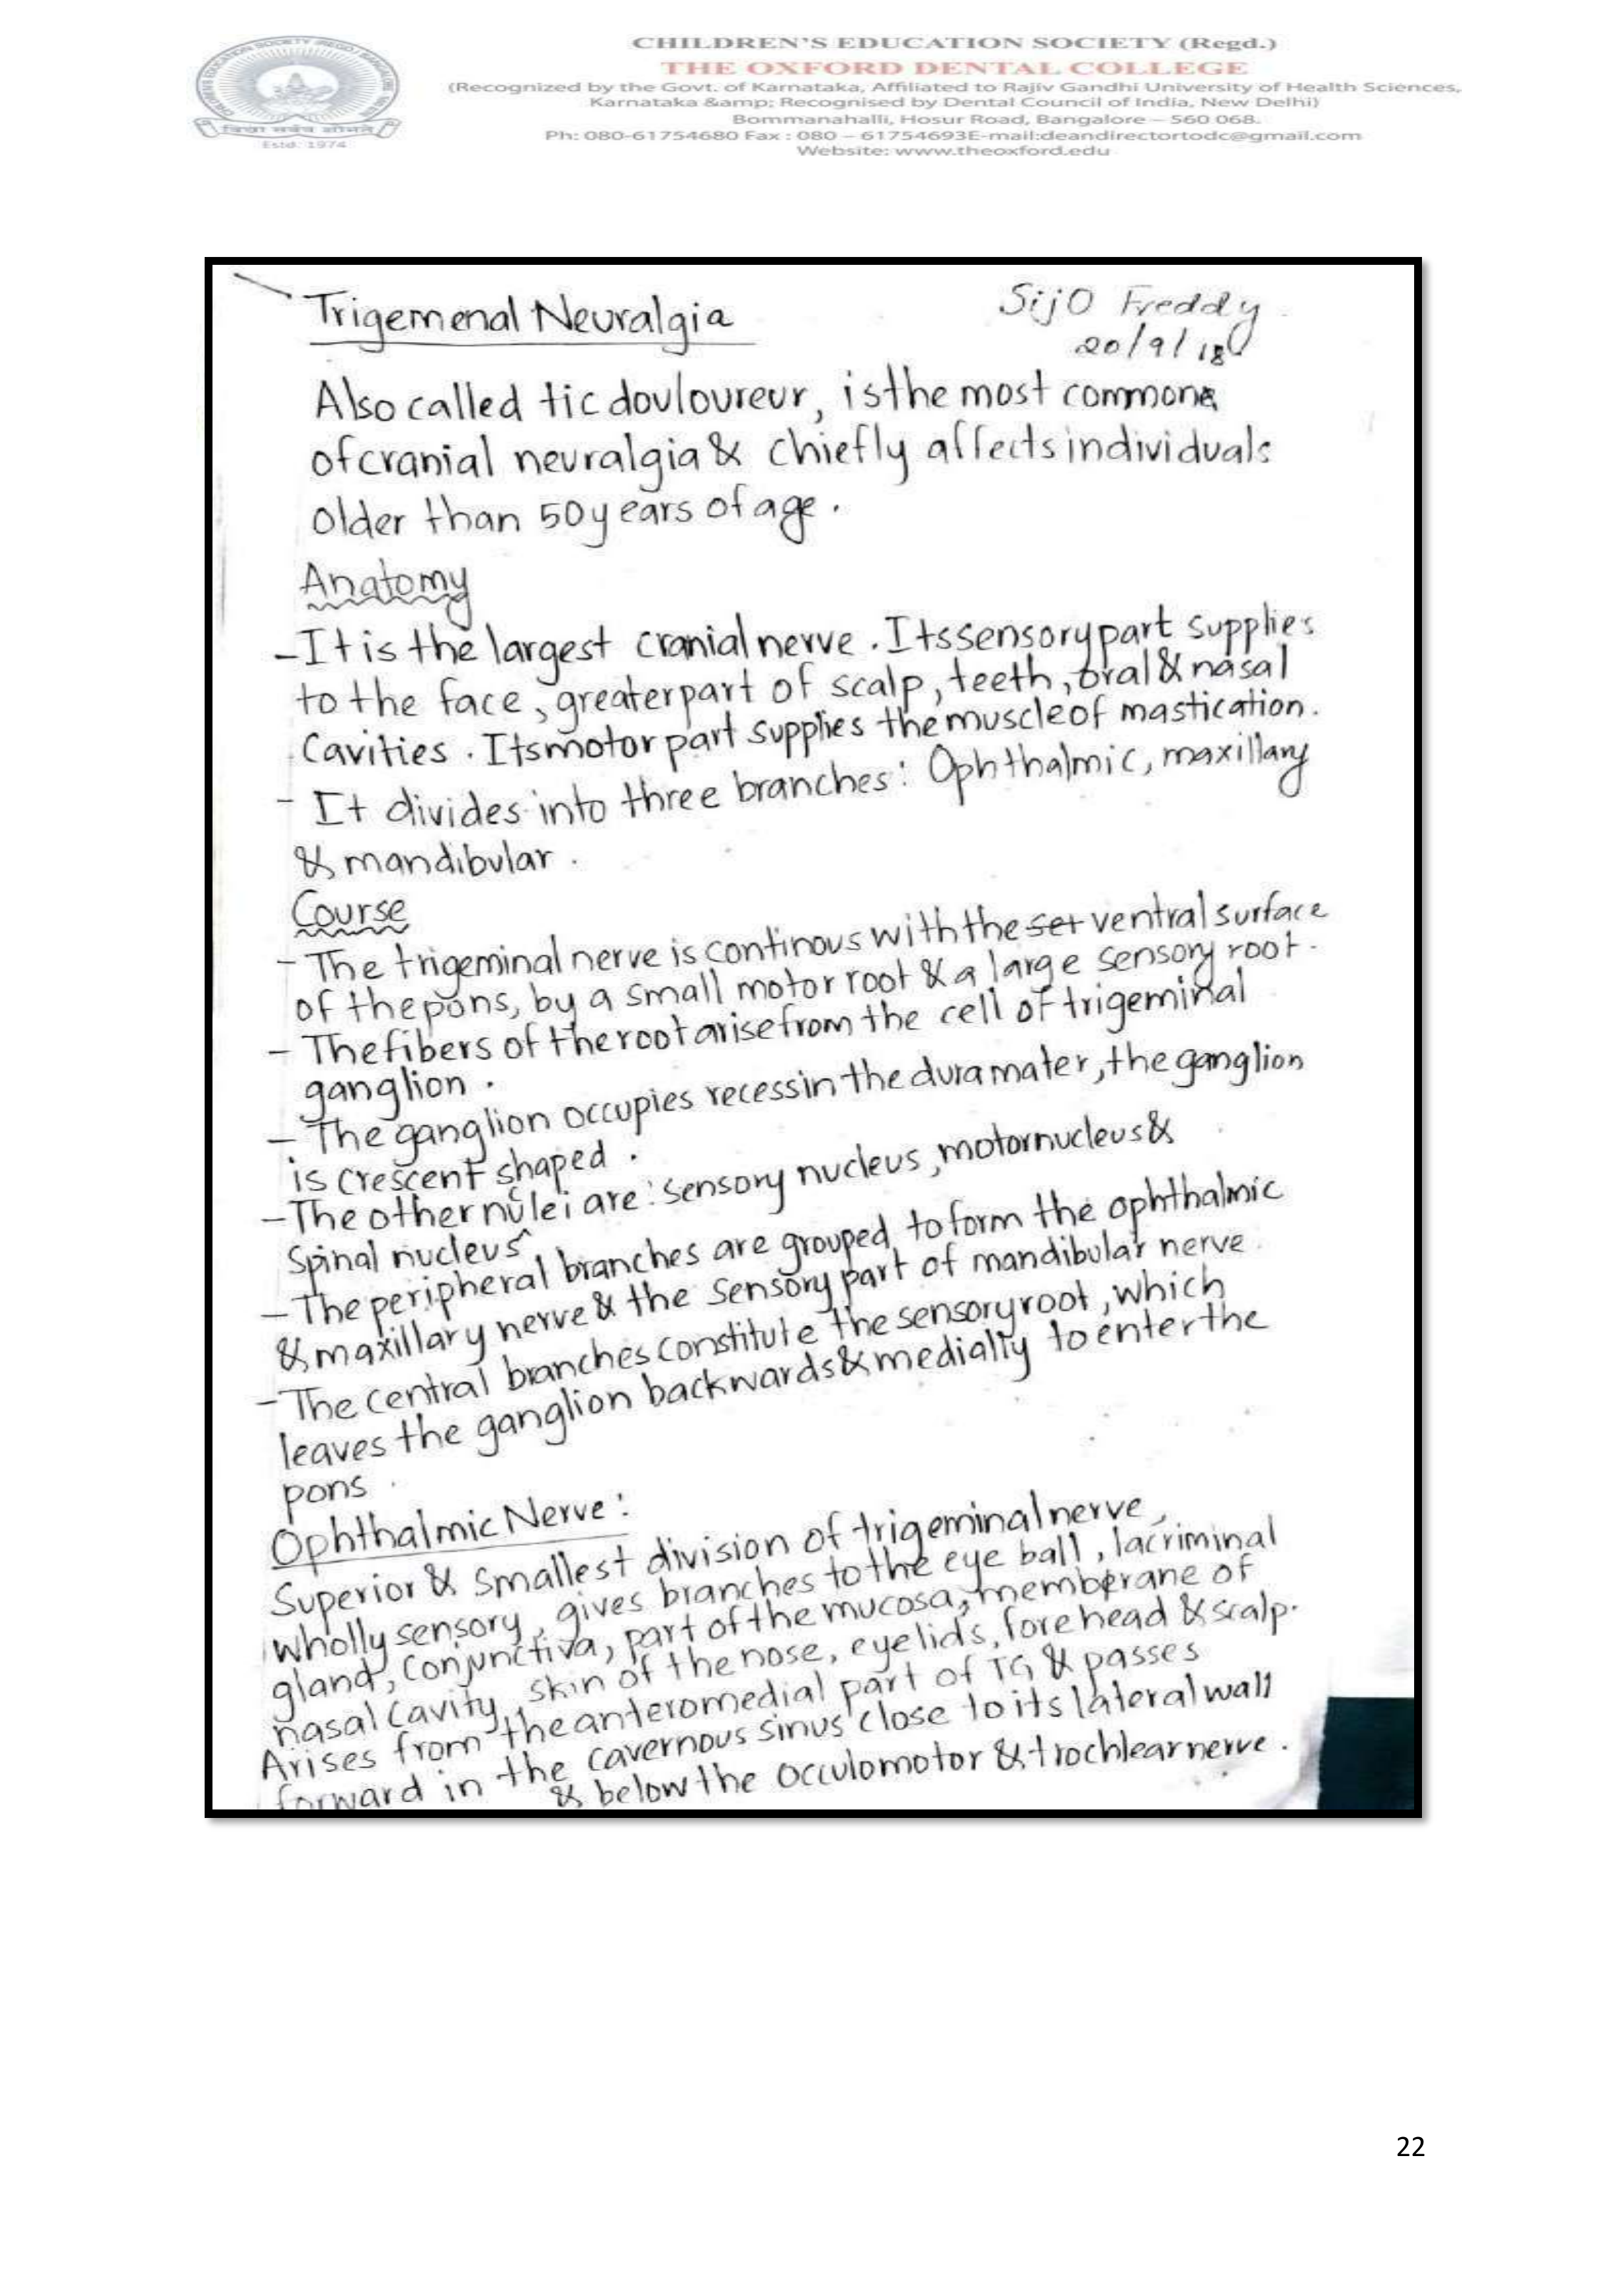 CHILDREN'S EDUCATION SOCIETY (Regd.)
THE OXFORD DENTAL COLLEGE
(Recognized by the Govt. of Karnataka, Affiliated to Rajiv Gandhi University of Health Sciences,
Karnataka &amp; Recognised by Dental Council of India, New Delhi)
Bommanahalli, Hosur Road, Bangalore – 560 068.
Ph: 080-61754680 Fax : 080 – 61754693E-mail:deandirectortodc@gmail.com
Website: www.theoxford.edu
Estd. 1974
Trigemenal Neuralgia
Sijo Freddy
20/9/18
Also called tic douloureur, is the most common
of cranial neuralgia & chiefly affects individuals
older than 50 years of age.
Anatomy
- It is the largest cranial nerve. Its sensory part supplies
to the face, greater part of scalp, teeth, oral & nasal
Cavities. Its motor part supplies the muscle of mastication.
- It divides into three branches: Ophthalmic, maxillary
& mandibular.
Course
- The trigeminal nerve is continous with the set ventral surface
of the pons, by a small motor root & a large sensory root.
- The fibers of the root arise from the cell of trigeminal
ganglion.
- The ganglion occupies recess in the dura mater, the ganglion
is crescent shaped.
- The other nuclei are: sensory nucleus, motor nucleus &
Spinal nucleus
- The peripheral branches are grouped to form the ophthalmic
& maxillary nerve & the sensory part of mandibular nerve.
- The central branches constitute the sensory root, which
leaves the ganglion backwards & medially to enter the
pons.
Ophthalmic Nerve:
Superior & Smallest division of trigeminal nerve,
wholly sensory, gives branches to the eye ball, lacriminal
gland, conjunctiva, part of the mucosa, memberane of
nasal cavity, skin of the nose, eyelids, forehead & scalp.
Arises from the anteromedial part of TG & passes
forward in the cavernous sinus close to its lateral wall
& below the occulomotor & trochlear nerve.
22